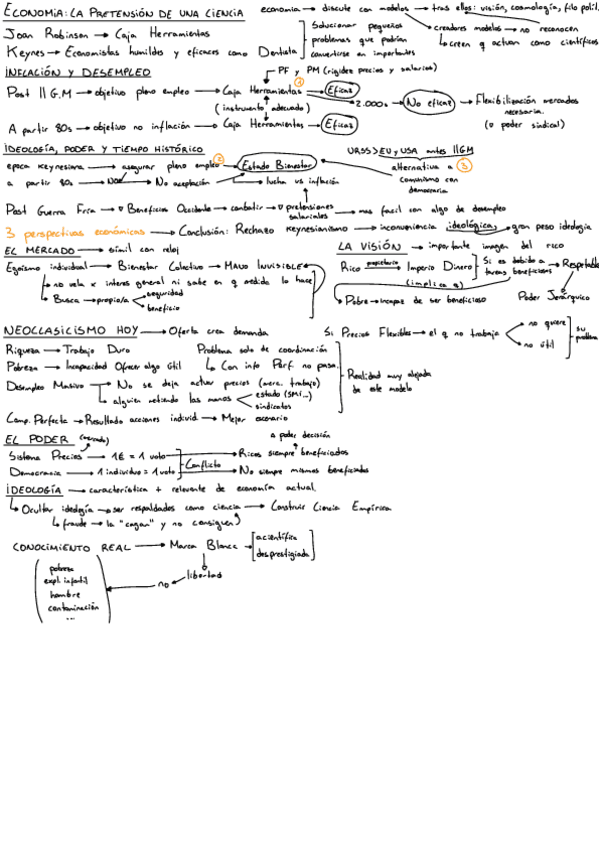 ECONOMÍA: LA PRETENSIÓN DE UNA CIENCIA
economía → discute con modelos → tras ellos: visión, cosmología, filo polit.
creadores modelos → no reconocen
↳ creen q actuan como científicos
Joan Robinson → Caja Herramientas
Keynes → Economistas humildes y eficaces como Dentista
Solucionar pequeños
problemas que podrían
convertirse en importantes
INFLACIÓN Y DESEMPLEO
PF y PM (rigidez precios y salarios)
Post II G.M → objetivo pleno empleo → Caja Herramientas ① → Eficaz
(instrumento adecuado)
2.000s → No eficaz → Flexibilización mercados
necesaria.
(↓ poder sindical)
A partir 80s → objetivo no inflación → Caja Herramientas → Eficaz
IDEOLOGÍA, PODER Y TIEMPO HISTÓRICO
URSS > EU y USA antes IIGM
epoca Keynesiana → asegurar pleno empleo ② → Estado Bienestar
alternativa a ③
comunismo con
democracia
a partir 80s → No → No aceptación → lucha vs inflación
Post Guerra Fría → ↓ Beneficios Occidente → combatir → ↓ pretensiones
salariales → mas facil con algo de desempleo
3 perspectivas económicas → Conclusión: Rechazo Keynesianismo → inconveniencia ideológica → gran peso ideología
EL MERCADO → símil con reloj
Egoísmo individual → Bienestar Colectivo → MANO INVISIBLE
↳ no vela x interes general ni sabe en q medida lo hace
↳ Busca → propio/a
seguridad
beneficio
LA VISIÓN → importante imagen del rico
Rico propietario → Imperio Dinero
Si es debido a
tareas beneficiosas → Respetable
(implica q)
↳ Pobre → incapaz de ser beneficioso
Poder Jerárquico
NEOCLASICISMO HOY → Oferta crea demanda
Si Precios Flexibles → el q no trabaja
no quiere
no útil
su problema
Riqueza → Trabajo Duro
Problema solo de coordinación
Pobreza → Incapacidad Ofrecer algo útil
↳ Con info Perf. no pasa.
Desempleo Masivo → No se deja actuar precios (merc. trabajo)
↳ alguien metiendo las manos
estado (SMI...)
sindicatos
Comp. Perfecta → Resultado acciones individ. → Mejor escenario
Realidad muy alejada
de este modelo
EL PODER (mercado)
a poder decisión
Sistema Precios → 1€ = 1 voto
Democracia → 1 individuo = 1 voto
Conflicto
Ricos siempre beneficiados
No siempre mismos beneficiados
IDEOLOGÍA → característica + relevante de economía actual.
↳ Ocultar ideología → ser respaldados como ciencia → Construir Ciencia Empírica
↳ fraude → la "cagan" y no consiguen
CONOCIMIENTO REAL → Marca Blanca
acientífica
desprestigiada
libertad
no
pobreza
expl. infantil
hambre
contaminación
...